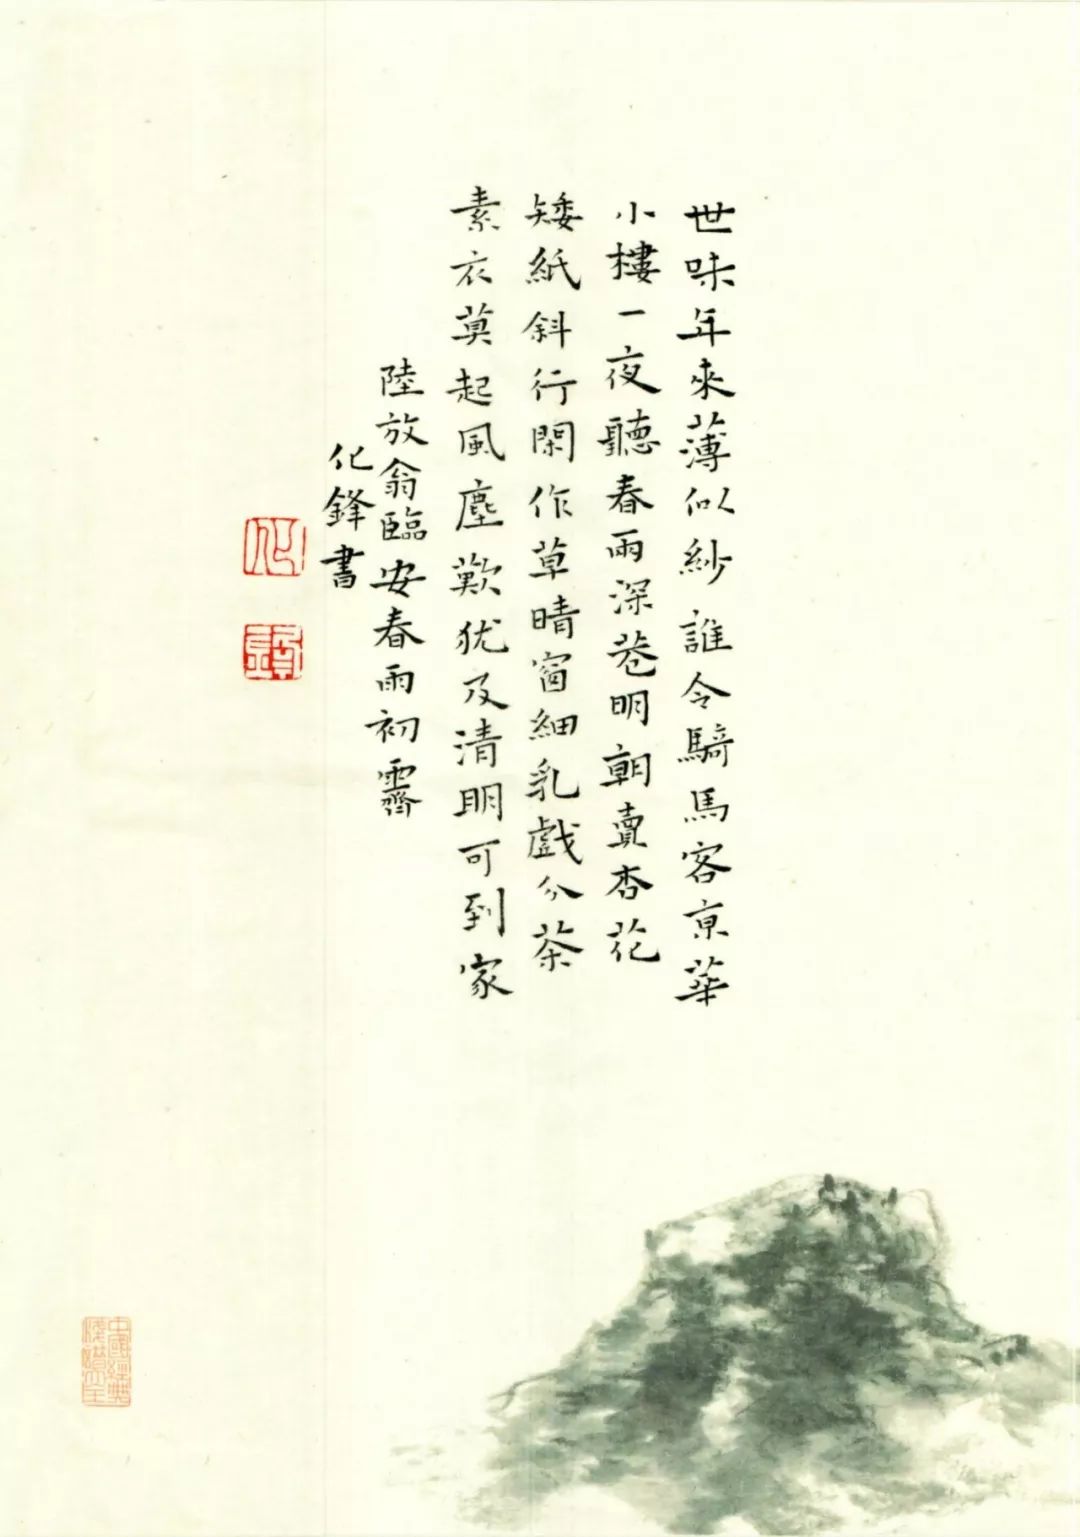 世味年來薄似紗誰令騎馬客京華
小樓一夜聽春雨深巷明朝賣杏花
矮紙斜行閑作草晴窗細乳戲分茶
素衣莫起風塵歎犹及清明可到家
陸放翁臨安春雨初霽
化鋒書